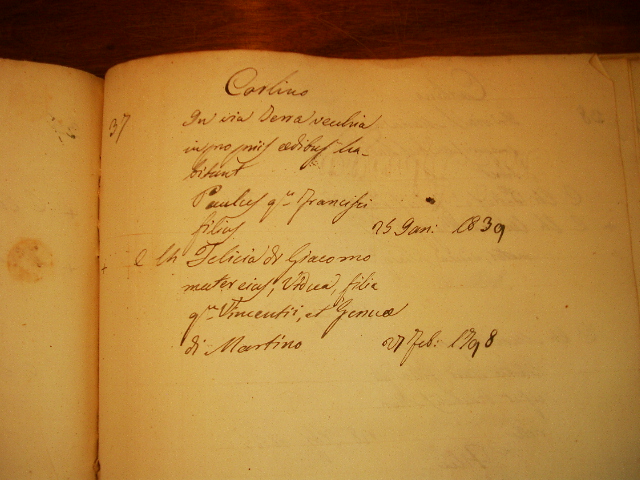 Carlino
37 In via Terra vecchia
in propriis ædibus ha-
bitant
Paulus qm Francisci
filius 25 Jan: 1839
e Ch Felicia di Giacomo
mater eius, Vidua, filia
qm Vincentii, et Gemmæ
di Martino 27 Feb: 1798